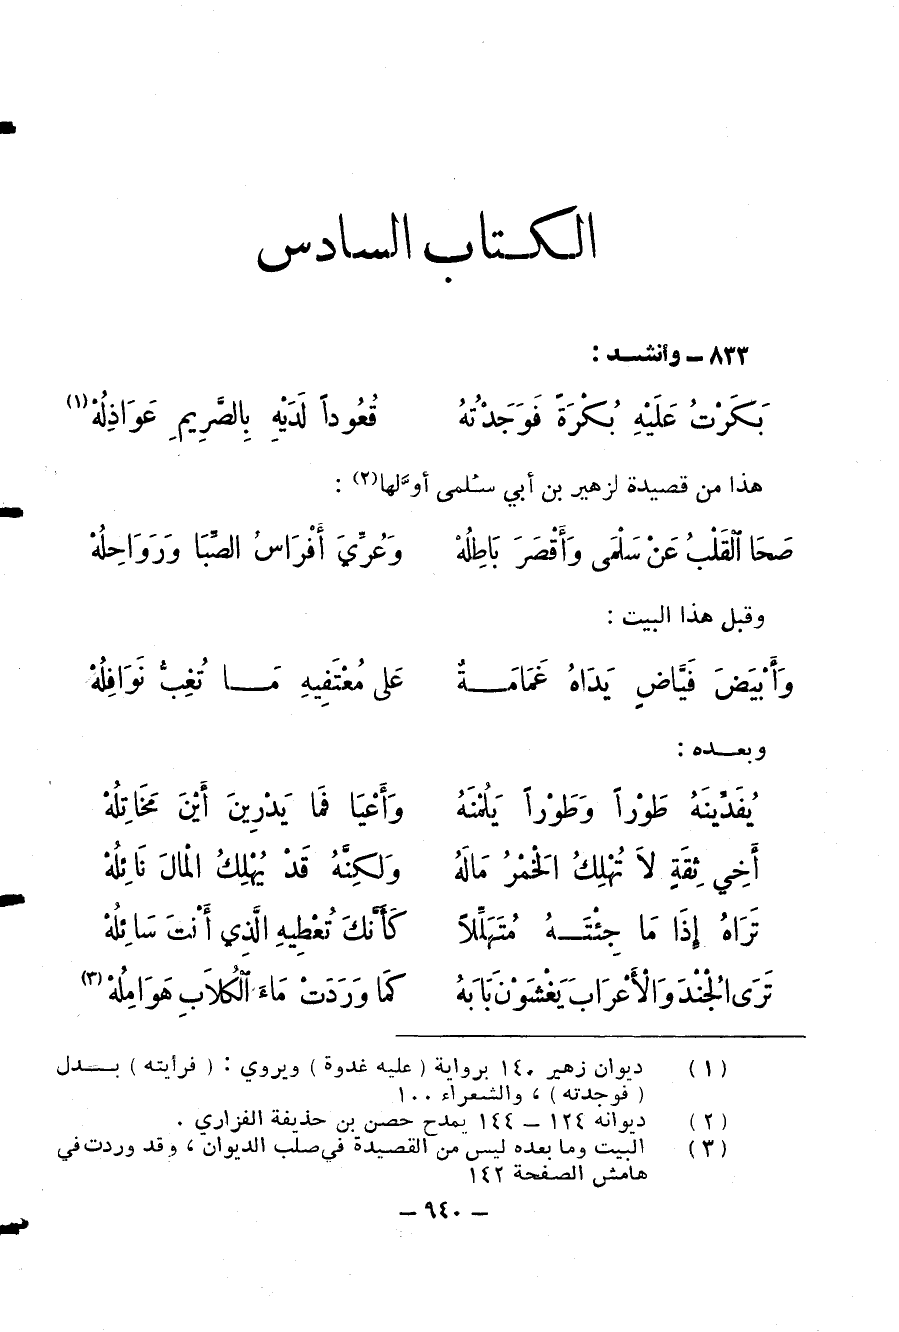 الكتاب السادس
٨٣٣ – وأنشد :
بَكَرْتُ عَلَيْهِ بُكْرَةً فَوَجَدْتُهُ قُعُوداً لَدَيْهِ بِالصَّرِيمِ عَوَاذِلُهْ (١)
هذا من قصيدة لزهير بن أبي سُلمى أوَّلها (٢) :
صَحَا الْقَلْبُ عَنْ سَلْمَى وَأَقْصَرَ بَاطِلُهْ وَعُرِّيَ أَفْرَاسُ الصِّبَا وَرَوَاحِلُهْ
وقبل هذا البيت :
وَأَبْيَضَ فَيَّاضٍ يَدَاهُ غَمَامَةٌ عَلى مُعْتَفِيهِ مَا تُغِبُّ نَوَافِلُهْ
وبعده :
يُفَدِّينَهُ طَوْراً وَطَوْراً يَلُمْنَهُ وَأَعْيَا فَمَا يَدْرِينَ أَيْنَ مَخَاتِلُهْ
أَخِي ثِقَةٍ لاَ تُهْلِكُ الْخَمْرُ مَالَهُ وَلكِنَّهُ قَدْ يُهْلِكُ الْمَالَ نَائِلُهْ
تَرَاهُ إِذَا مَا جِئْتَهُ مُتَهَلِّلاً كَأَنَّكَ تُعْطِيهِ الَّذِي أَنْتَ سَائِلُهْ
تَرَى الْجُنْدَ وَالْأَعْرَابَ يَغْشَوْنَ بَابَهُ كَمَا وَرَدَتْ مَاءَ الْكُلَابِ هَوَامِلُهْ (٣)
(١) ديوان زهير ١٤٠ برواية ( عليه غدوة ) ويروي : ( فرأيته ) بدل
( فوجدته ) ، والشعراء ١٠٠
(٢) ديوانه ١٢٤ – ١٤٤ يمدح حصن بن حذيفة الفزاري .
(٣) البيت وما بعده ليس من القصيدة في صلب الديوان ، وقد وردت في
هامش الصفحة ١٤٢
– ٩٤٠ –